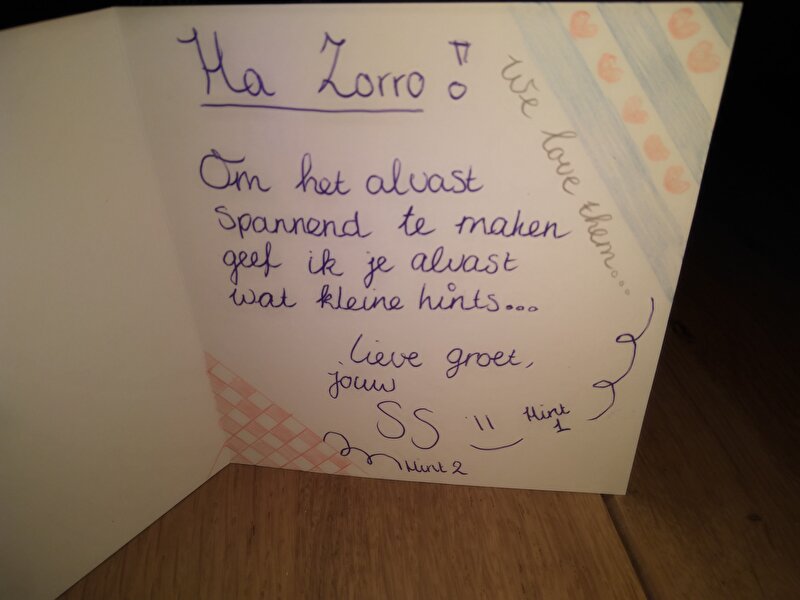 Ha Zorro!
We love them...
Om het alvast
spannend te maken
geef ik je alvast
wat kleine hints...
Lieve groet,
jouw
SS
Hint
1
Hint 2